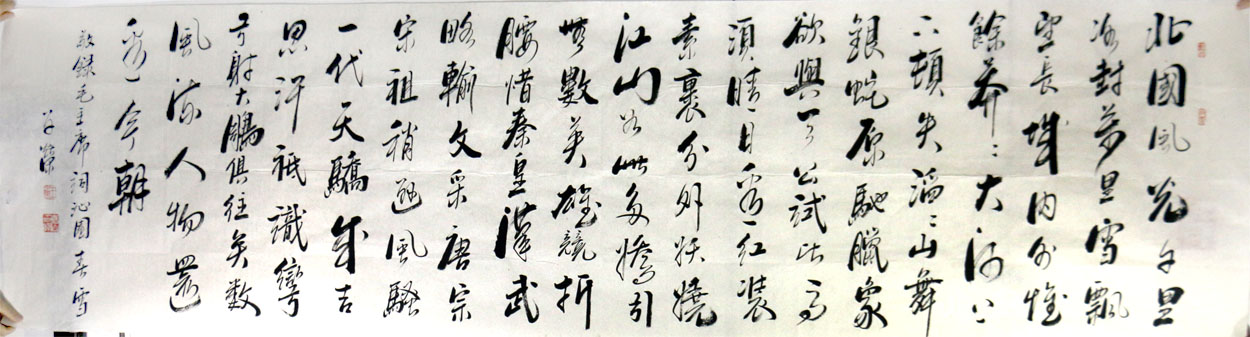 北國風光千里
冰封萬里雪飄
望長城内外惟
餘莽〻大河上
下頓失滔〻山舞
銀蛇原馳臘象
欲與天公試比高
須晴日看紅裝
素裹分外妖嬈
江山如此多嬌引
無數英雄競折
腰惜秦皇漢武
略輸文采唐宗
宋祖稍遜風騷
一代天驕成吉
思汗祇識彎
弓射大鵰俱往矣数
風流人物還
看今朝
敬錄毛主席詞沁園春雪